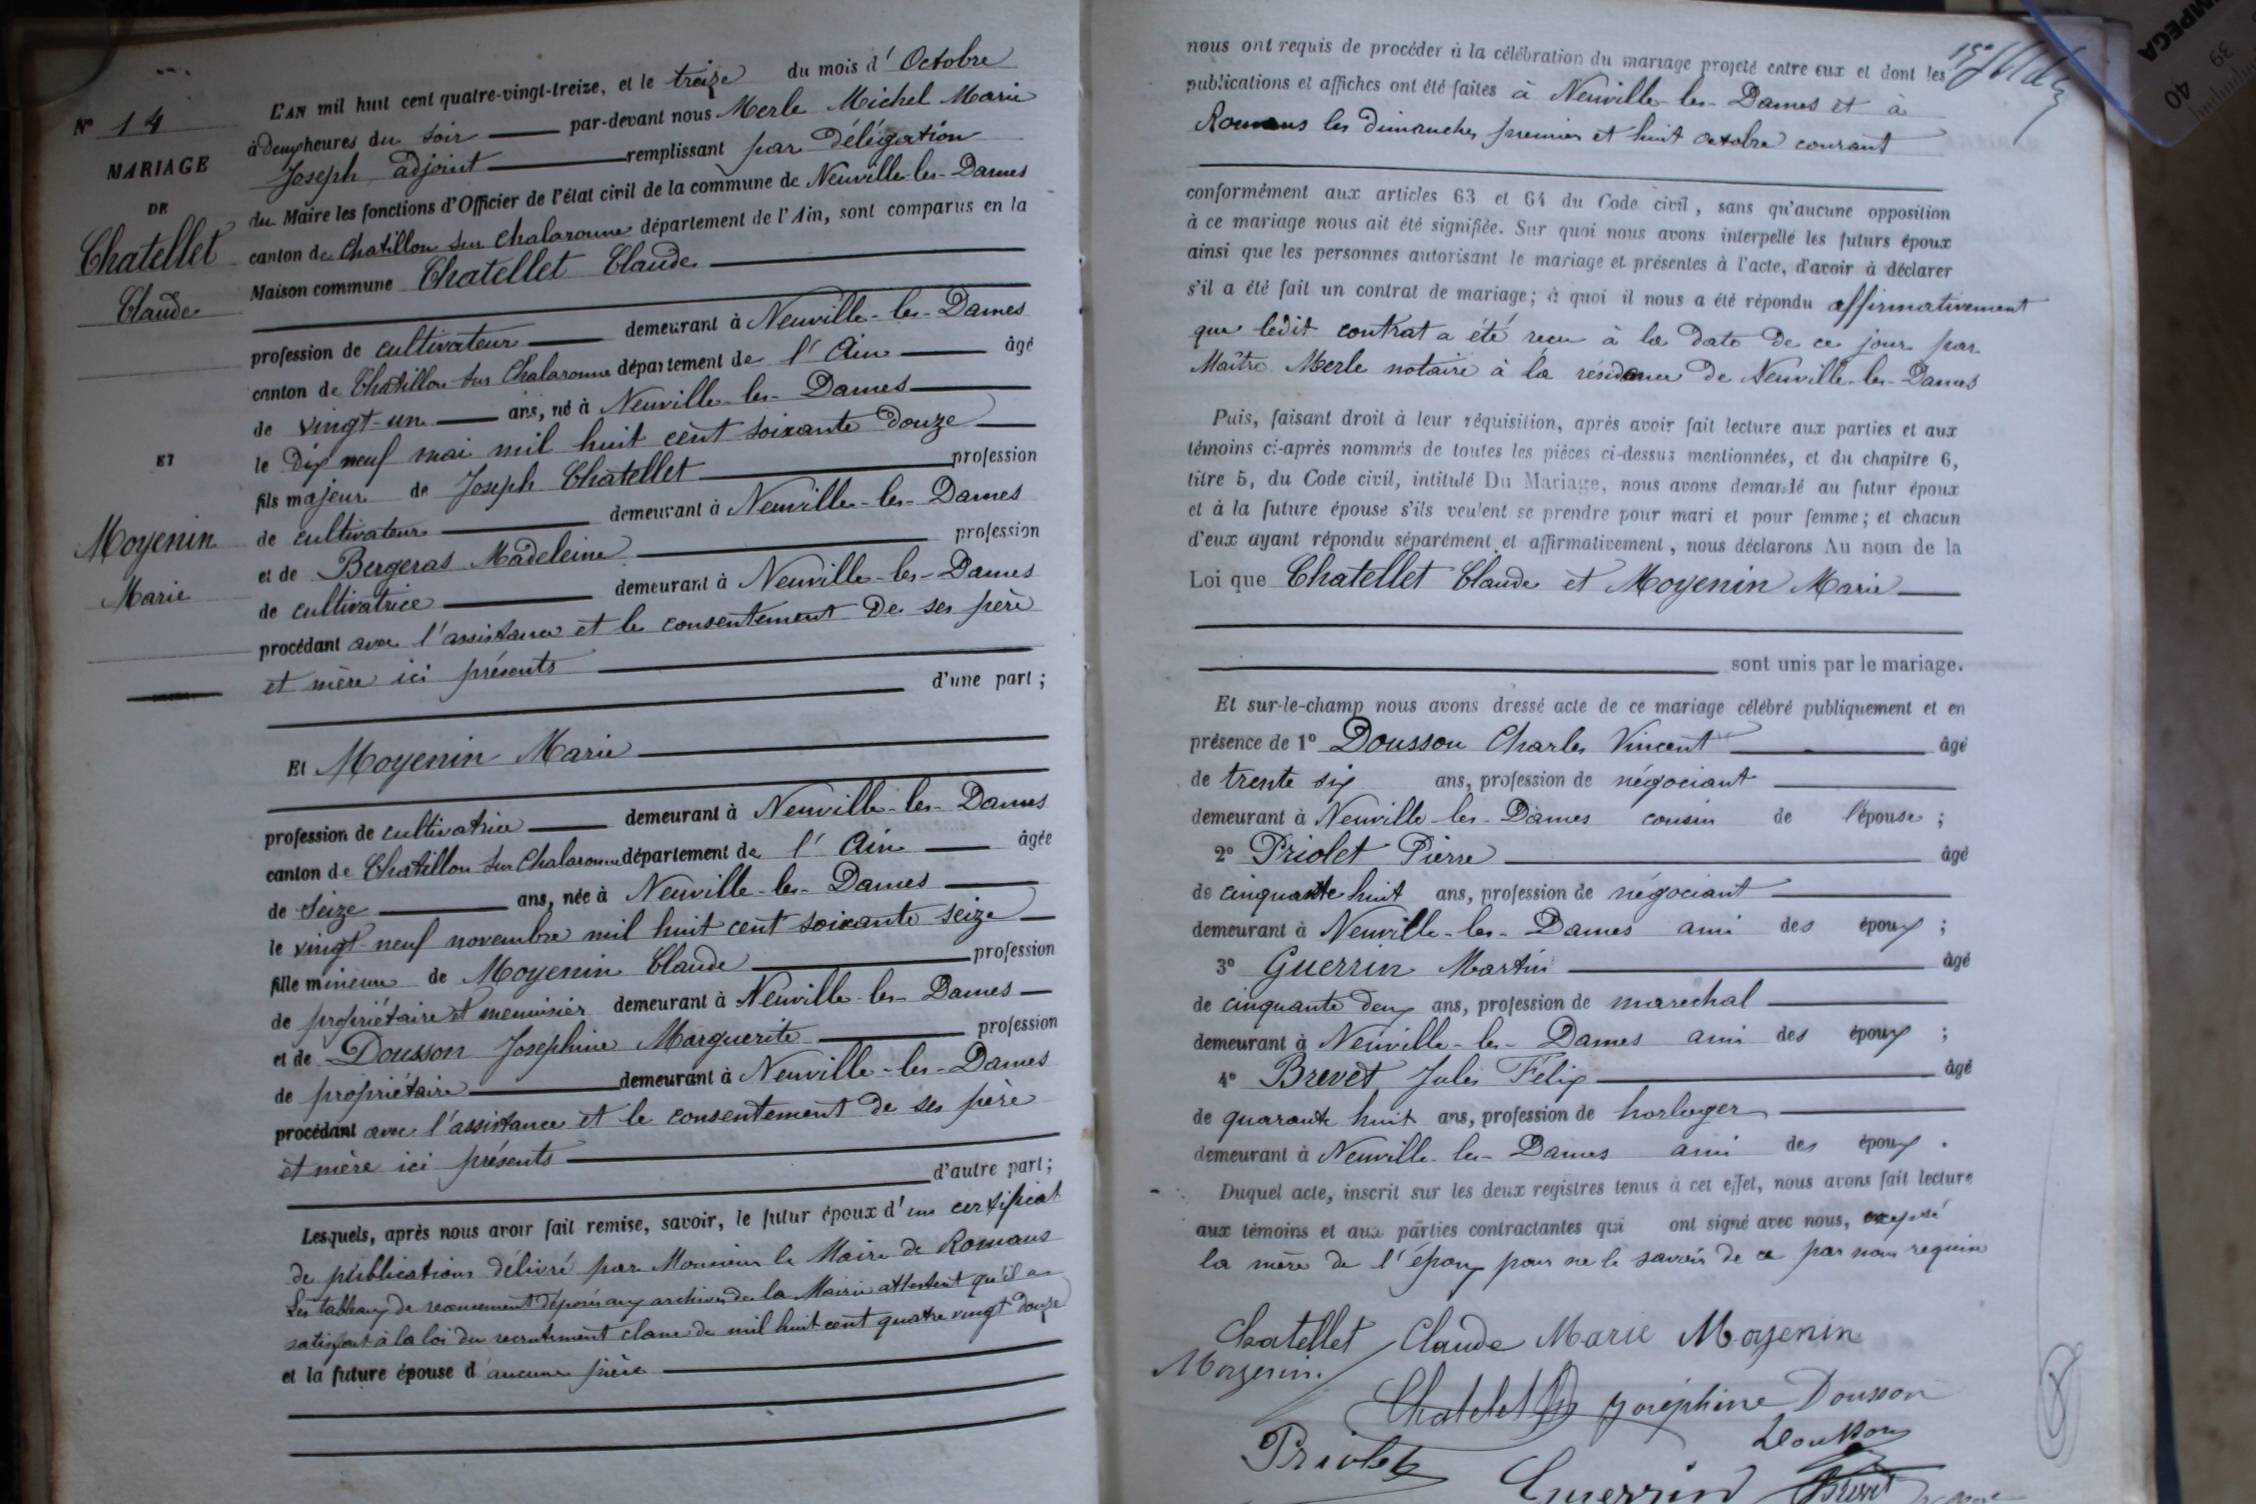 L'AN mil huit cent quatre-vingt-treize, et le treize du mois d'Octobre
à deux heures du soir par-devant nous Merle Michel Marie
Joseph adjoint remplissant par délégation
du Maire les fonctions d'Officier de l'état civil de la commune de Neuville-les-Dames
canton de Chatillon sur Chalaronne département de l'Ain, sont comparus en la
Maison commune Chatellet Claude
profession de cultivateur demeurant à Neuville-les-Dames
canton de Chatillon sur Chalaronne département de l'Ain âgé
de vingt-un ans, né à Neuville-les-Dames
le dix neuf mai mil huit cent soixante douze
fils majeur de Joseph Chatellet profession
de cultivateur demeurant à Neuville-les-Dames
et de Bergeras Madeleine profession
de cultivatrice demeurant à Neuville-les-Dames
procédant avec l'assistance et le consentement de ses père
et mère ici présents
d'une part ;
Et Moyenin Marie
profession de cultivatrice demeurant à Neuville-les-Dames
canton de Chatillon sur Chalaronne département de l'Ain âgée
de seize ans, née à Neuville-les-Dames
le vingt-neuf novembre mil huit cent soixante seize
fille mineure de Moyenin Claude profession
de propriétaire et menuisier demeurant à Neuville-les-Dames
et de Dousson Josephine Marguerite profession
de propriétaire demeurant à Neuville-les-Dames
procédant avec l'assistance et le consentement de ses père
et mère ici présents
d'autre part ;
Lesquels, après nous avoir fait remise, savoir, le futur époux d'un certificat
de publications délivré par Monsieur le Maire de Romans
Les tableaux de recensement déposés aux archives de la Mairie attestent qu'il a
satisfait à la loi du recrutement classe de mil huit cent quatre vingt douze
et la future épouse d'aucune pièce
N° 14
MARIAGE
DE
Chatellet
Claude
ET
Moyenin
Marie
nous ont requis de procéder à la célébration du mariage projeté entre eux et dont les
publications et affiches ont été faites à Neuville-les-Dames et à
Romans les dimanches premier et huit octobre courant
conformément aux articles 63 et 64 du Code civil, sans qu'aucune opposition
à ce mariage nous ait été signifiée. Sur quoi nous avons interpellé les futurs époux
ainsi que les personnes autorisant le mariage et présentes à l'acte, d'avoir à déclarer
s'il a été fait un contrat de mariage ; à quoi il nous a été répondu affirmativement
que ledit contrat a été reçu à la date de ce jour par
Maître Merle notaire à la résidence de Neuville-les-Dames
Puis, faisant droit à leur réquisition, après avoir fait lecture aux parties et aux
témoins ci-après nommés de toutes les pièces ci-dessus mentionnées, et du chapitre 6,
titre 5, du Code civil, intitulé Du Mariage, nous avons demandé au futur époux
et à la future épouse s'ils veulent se prendre pour mari et pour femme ; et chacun
d'eux ayant répondu séparément et affirmativement, nous déclarons Au nom de la
Loi que Chatellet Claude et Moyenin Marie
sont unis par le mariage.
Et sur-le-champ nous avons dressé acte de ce mariage célébré publiquement et en
présence de 1° Dousson Charles Vincent âgé
de trente six ans, profession de négociant
demeurant à Neuville-les-Dames cousin de l'épouse ;
2° Priolet Pierre âgé
de cinquante huit ans, profession de négociant
demeurant à Neuville-les-Dames ami des époux ;
3° Guerrin Martin âgé
de cinquante deux ans, profession de marechal
demeurant à Neuville-les-Dames ami des époux ;
4° Brevet Jules Félix âgé
de quarante huit ans, profession de horloger
demeurant à Neuville-les-Dames ami des époux.
Duquel acte, inscrit sur les deux registres tenus à cet effet, nous avons fait lecture
aux témoins et aux parties contractantes qui ont signé avec nous, excepté
la mère de l'époux pour ne le savoir de ce par nous requise
Chatellet Claude Marie Moyenin
Moyenin
Chatelet Joséphine Dousson
Priolet Dousson
Guerrin Brevet
OMPEGA
39
40